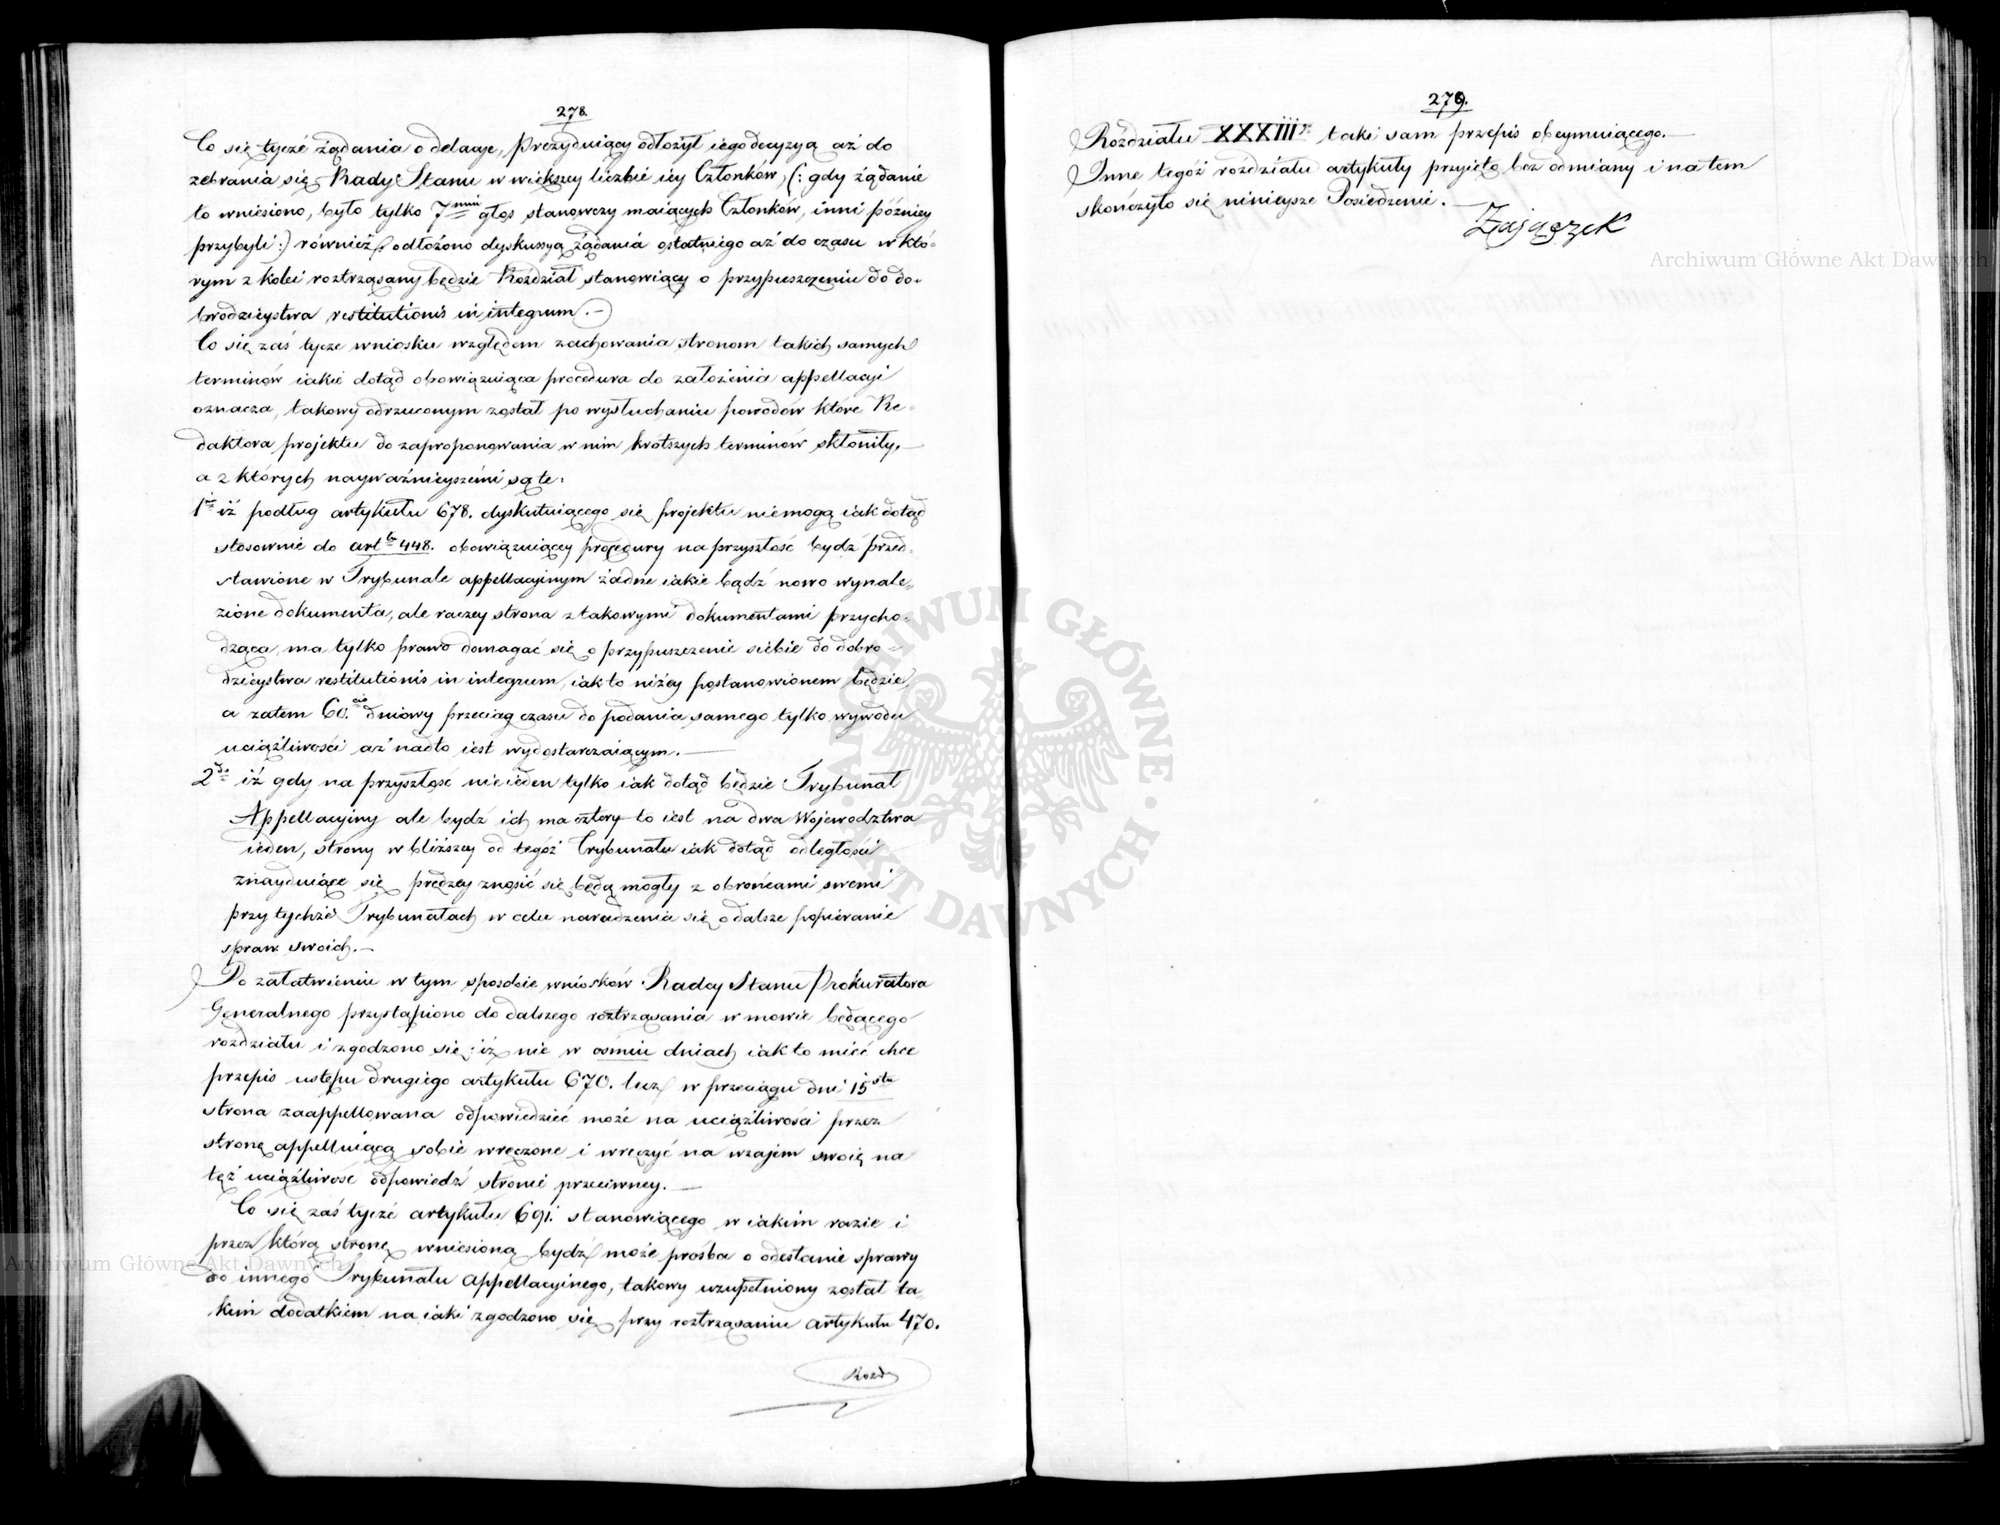 278.
Co się tycze żądania o delacye, Prezyduiący odłożył iego decyzyą aż do
zebrania się Rady Stanu w większey liczbie iey Członków, (: gdy żądanie
to wniesiono, było tylko 7miu głos stanowczy maiących Członków, inni później
przybyli :) również odłożono dyskussyą żądania ostatniego aż do czasu w któ-
rym z kolei roztrząsany będzie Rozdział stanowiący o przypuszczeniu do do-
brodzieystwa restitutionis in integrum. —
Co się zaś tycze wniosku względem zachowania stronom takich samych
terminów iakie dotąd obowiązuiąca procedura do założenia appellacyi
oznacza, takowy odrzuconym został po wysłuchaniu powodów które Re-
daktora projektu do zaproponowania w nim krótszych terminów skłoniły, —
a z których nayważnieyszemi są te:
1ód iż podług artykułu 678. dyskutuiącego się projektu nie mogą iak dotąd
stosownie do artłu 448. obowiązuiącey procedury na przyszłość bydź przed-
stawione w Trybunale appellacyinym żadne iakie bądź nowo wynale-
zione dokumenta, ale raczey strona z takowymi dokumentami przycho-
dząca, ma tylko prawo domagać się o przypuszczenie siebie do dobro-
dzieystwa restitutionis in integrum, iak to niżey postanowionem będzie,
a zatem 60.cio dniowy przeciąg czasu do podania samego tylko wywodu
uciążliwości aż nadto iest wydostarczaiącym. —
2do iż gdy na przyszłość nie ieden tylko iak dotąd będzie Trybunał
Appellacyiny ale bydź ich ma cztery to iest na dwa Województwa
ieden, strony w bliższey od tegóż Trybunału iak dotąd odległości
znayduiące się prędzey znosić się będą mogły z obrońcami swemi
przy tychże Trybunałach w celu naradzenia się o dalsze popieranie
spraw swoich. —
Po załatwieniu w tym sposobie wniosków Radcy Stanu Prokuratora
Generalnego przystąpiono do dalszego roztrząsania w mowie będącego
rozdziału i zgodzono się: iż nie w ośmiu dniach iak to mieć chce
przepis ustępu drugiego artykułu 670. lecz w przeciągu dni 15stu
strona zaappellowana odpowiedzieć może na uciążliwości przez
stronę appelluiącą sobie wręczone i wręczyć na wzajem swoią na
też uciążliwość odpowiedź stronie przeciwney. —
Co się zaś tycze artykułu 691. stanowiącego w iakim razie i
przez którą stronę wniesioną bydź może prośba o odesłanie sprawy
do innego Trybunału appellacyinego, takowy uzupełniony został ta-
kim dodatkiem na iaki zgodzono się przy roztrząsaniu artykułu 470.
Rozd
279.
Rozdziału XXXIIIgo taki sam przepis obeymuiącego. —
Inne tegóż rozdziału artykuły przyięto bez odmiany i na tem
skończyło się ninieysze Posiedzenie. —
Zajączek
Archiwum Główne Akt Dawnych
Archiwum Główne Akt Dawnych
ARCHIWUM GŁÓWNE AKT DAWNYCH